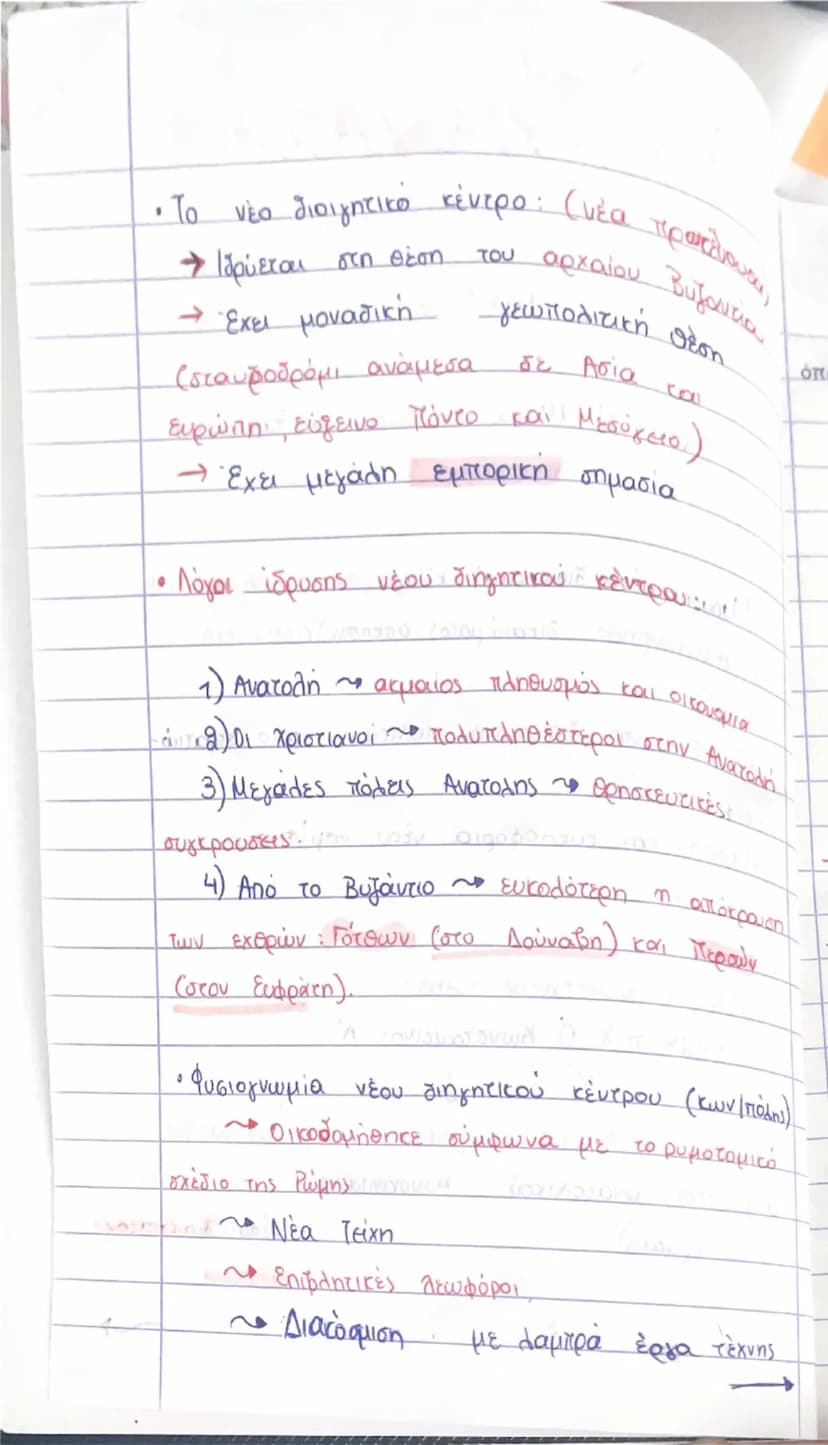 • Το νέο διοιγητικό κέντρο: (νέα πρωτεύουσα)
→ Ιδρύεται στη θέση του αρχαίου Βυζαντίου
→ Έχει μοναδική γεωπολιτική θέση
(σταυροδρόμι ανάμεσα σε Ασία και
Ευρώπη, εύξεινο Πόντο και Μεσόγειο)
→ Έχει μεγάλη εμπορική σημασία
• Λόγοι ίδρυσης νέου διηγητικού κέντρου:
1) Ανατολή ⤳ ακμαίος πληθυσμός και οικονομία
2) Οι Χριστιανοί ⤳ πολυπληθέστεροι στην Ανατολή
3) Μεγάλες πόλεις Ανατολης ⤳ θρησκευτικές
συγκρουσεις.
4) Από το Βυζάντιο ⤳ ευκολότερη η απόκρουση
των εχθρών: Γότθων (στο Δούναβη) και Περσών
(στον Ευφράτη).
• Φυσιογνωμία νέου διηγητικού κέντρου (κων/πόλης)
⤳ Οικοδομήθηκε σύμφωνα με το ρυμοτομικό
σχέδιο της Ρώμης
⤳ Νέα Τείχη
⤳ Επιβλητικές λεωφόροι
⤳ Διακόσμιση με λαμπρά έργα τέχνης
→